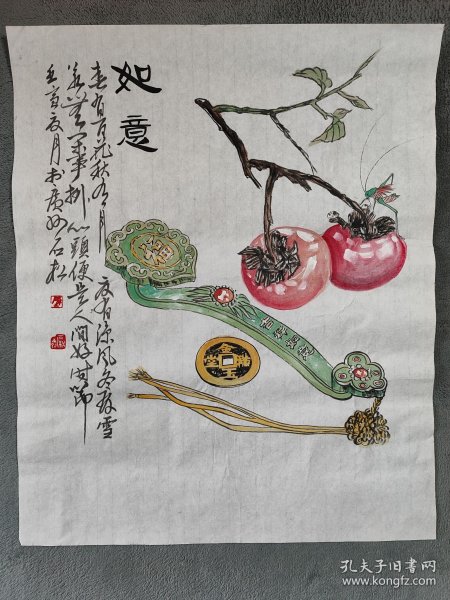 如意
春有百花秋有月 夏有凉风冬有雪
若无闲事挂心頭便是人间好时节
夏月书
石松
福
吉祥如意
金玉满堂
孔夫子旧书网
www.kongfz.com